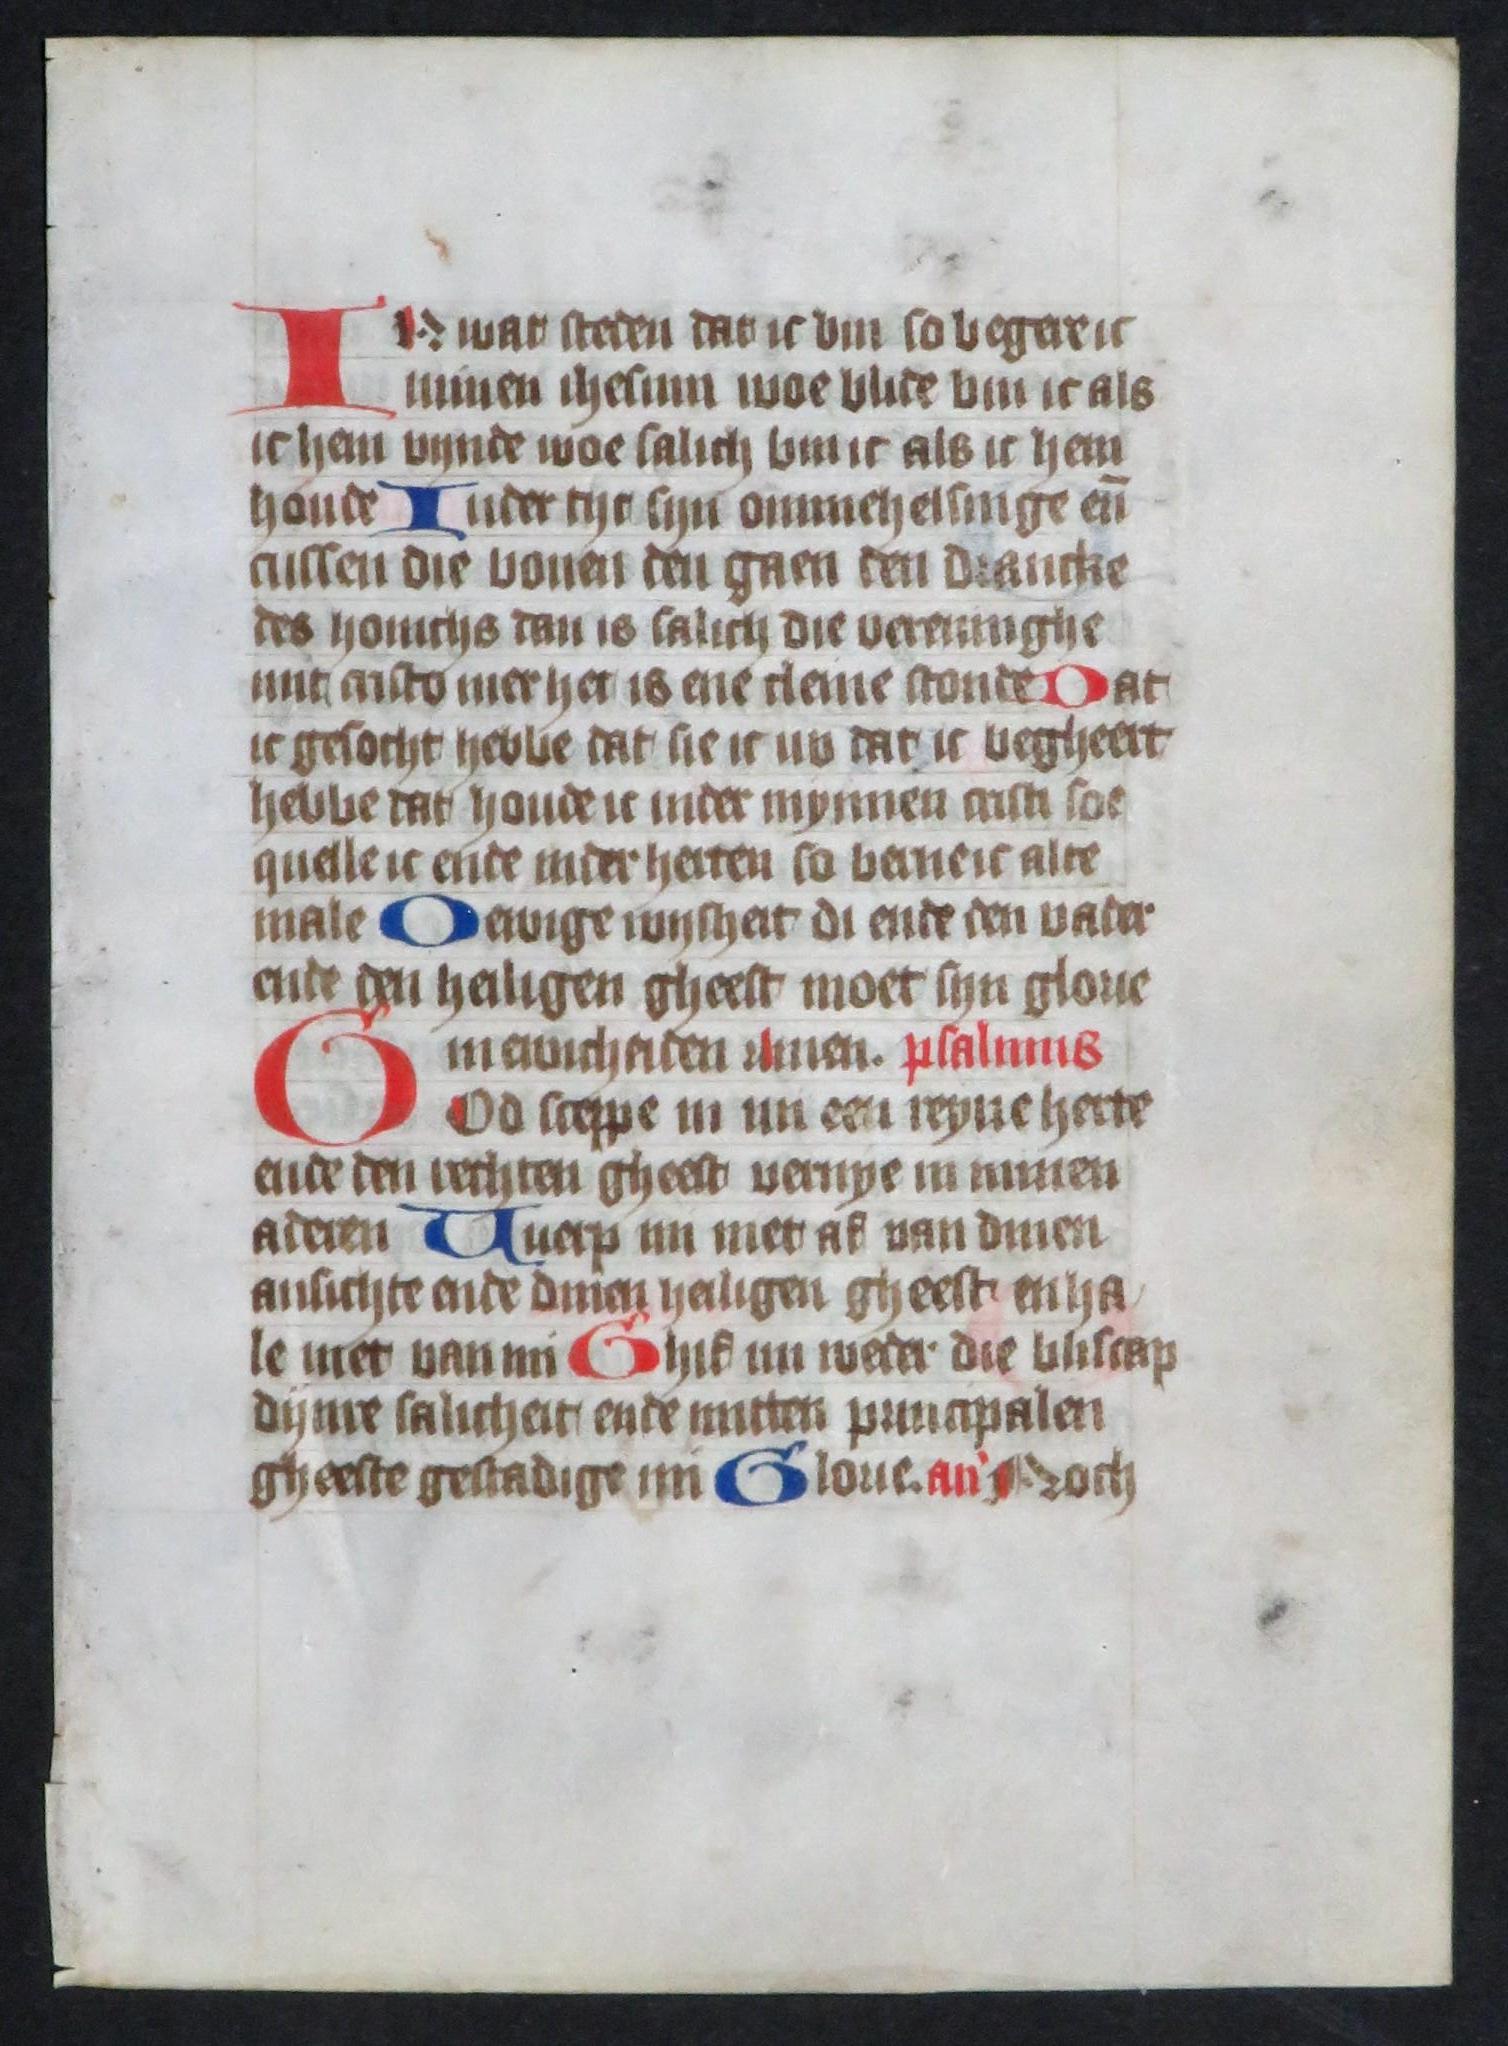 IN wat steden dat ic bin so begere ic
minen ihesum woe blide bin ic als
ic hem vynde woe salich bin ic als ic hem
houde In der tyt syn ommehelsinge eñ
cussen die bouen den gaen den drancke
des honichs dan is salich die vereninghe
mit cristo mer het is ene cleine stonde Dat
ic gesocht hebbe dat sie ic nv dat ic begheert
hebbe dat houde ic in der mynnen cristi soe
quelle ic ende in der herten so berne ic alte
male O ewige wysheit di ende den vader
ende den heiligen gheest moet syn glorie
in ewicheiden Amen. psalmus
GOd sceppe in mi een reyne herte
ende den rechten gheest vernye in minen
aderen Uuerp mi niet af van dinen
ansichte ende dinen heiligen gheest en ha
le niet van mi Ghif mi weder die bliscap
dijnre salicheit ende mitten principalen
gheeste gestadige mi Glorie. an' Noch